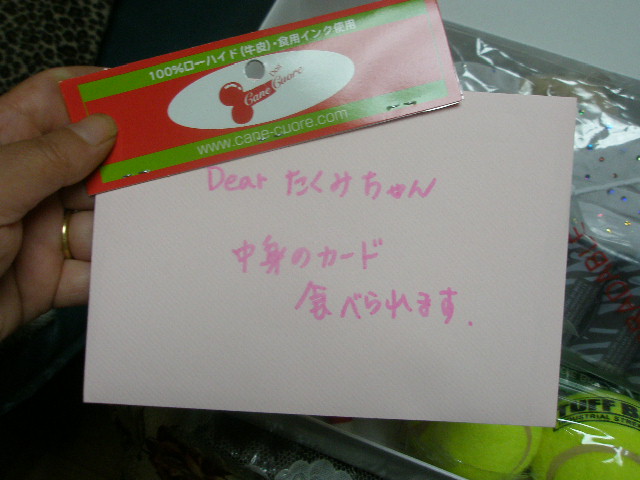 100%ローハイド(牛皮)・食用インク使用
Cane Cuore
www.cane-cuore.com
Dear たくみちゃん
中身のカード
食べられます.
TUFF B
INDUSTRIAL STRE